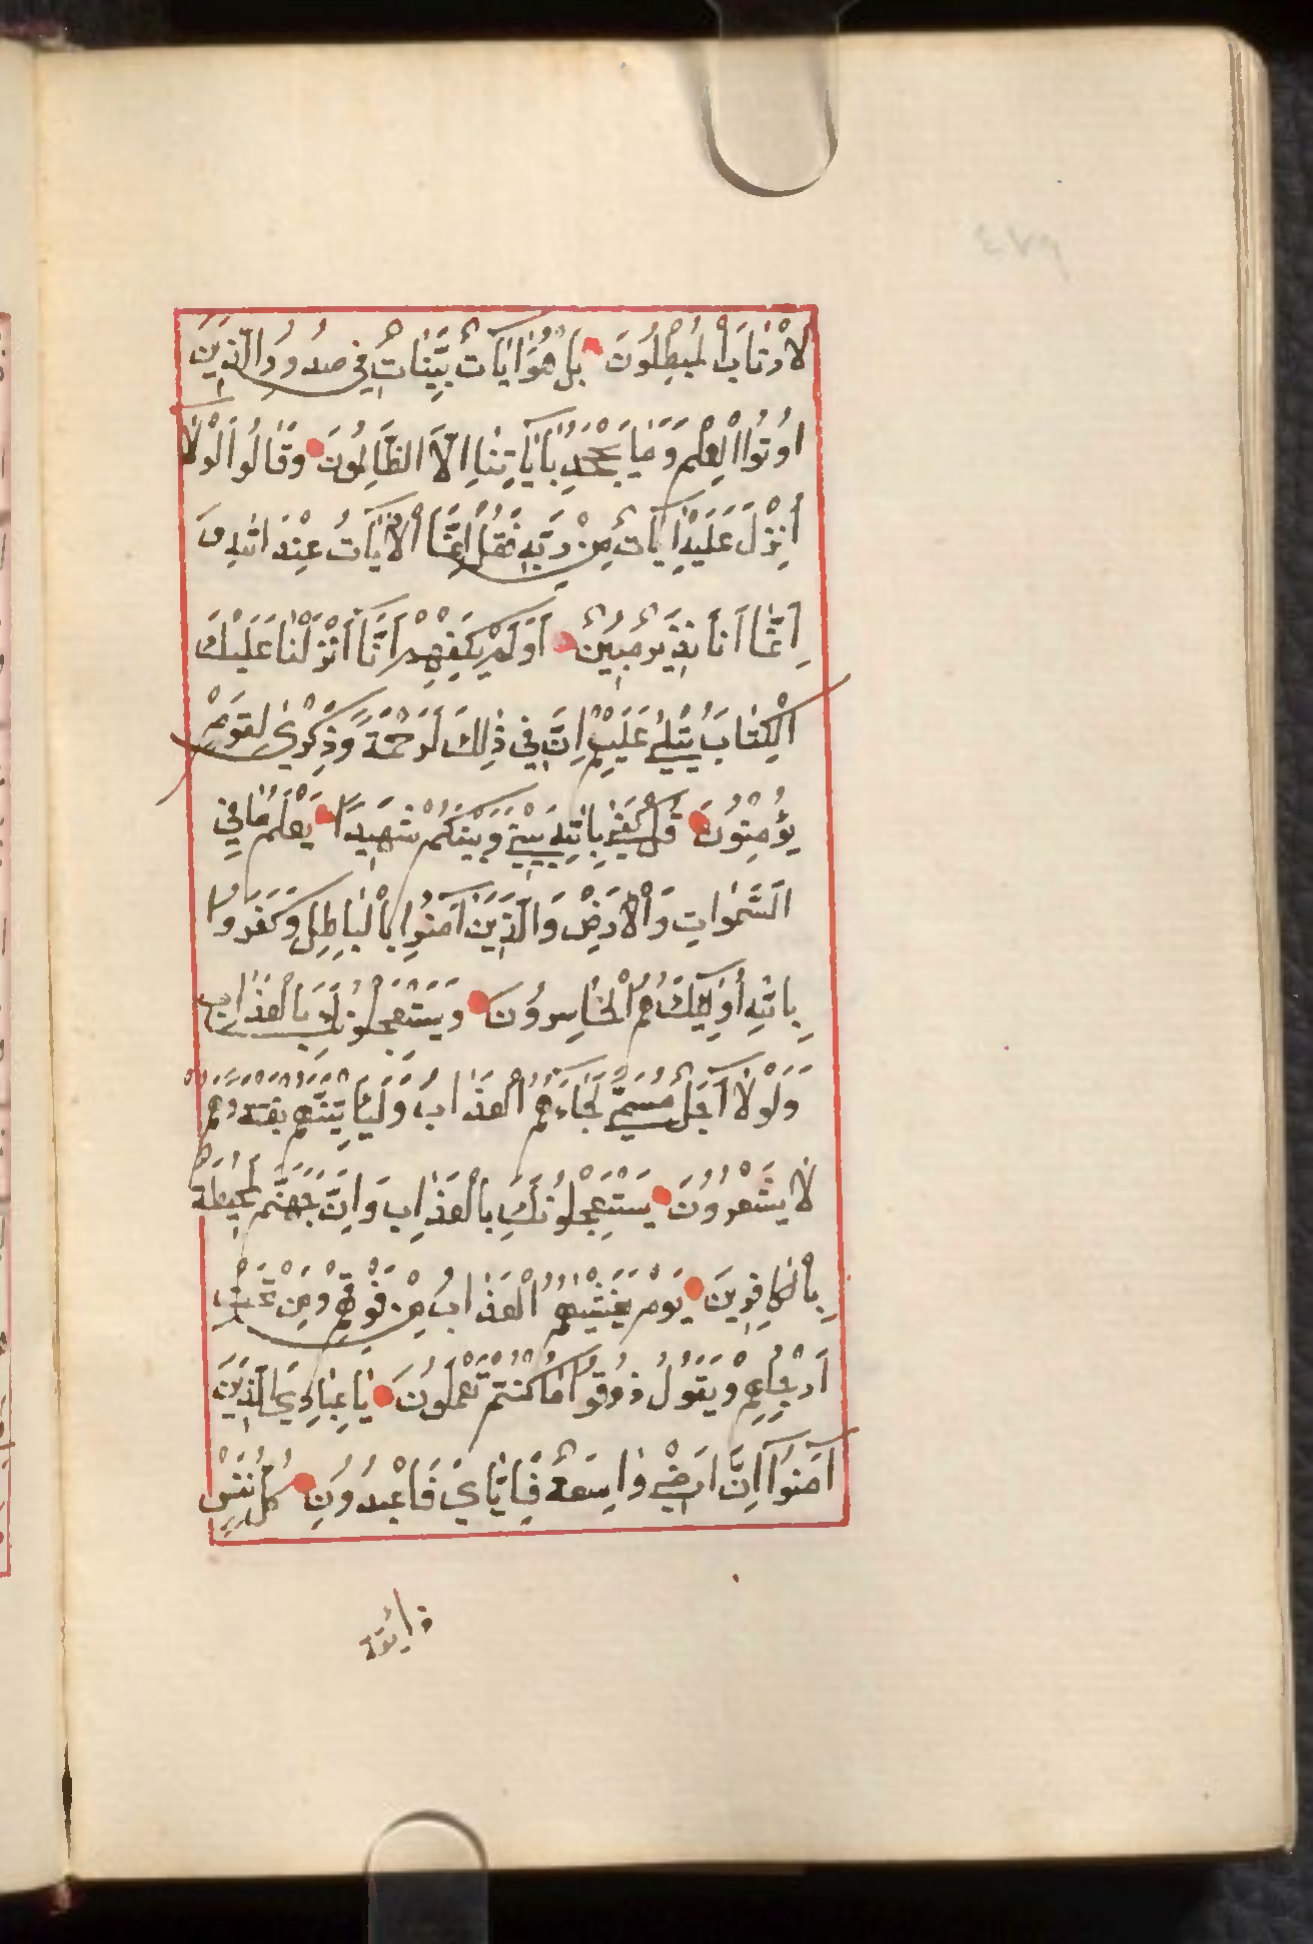 لَارْتَابَ الْمُبْطِلُونَ بَلْ هُوَ اٰيَاتٌ بَيِّنَاتٌ فِي صُدُورِ الَّذِينَ
اُوتُوا الْعِلْمَ وَمَا يَجْحَدُ بِاٰيَاتِنَا اِلَّا الظَّالِمُونَ وَقَالُوا لَوْلَا
اُنْزِلَ عَلَيْهِ اٰيَاتٌ مِنْ رَبِّهِ قُلْ اِنَّمَا الْاٰيَاتُ عِنْدَ اللّٰهِ وَ
اِنَّمَا اَنَا نَذِيرٌ مُبِينٌ اَوَلَمْ يَكْفِهِمْ اَنَّا اَنْزَلْنَا عَلَيْكَ
الْكِتَابَ يُتْلٰى عَلَيْهِمْ اِنَّ فِي ذٰلِكَ لَرَحْمَةً وَذِكْرٰى لِقَوْمٍ
يُؤْمِنُونَ قُلْ كَفٰى بِاللّٰهِ بَيْنِي وَبَيْنَكُمْ شَهِيدًا يَعْلَمُ مَا فِي
السَّمٰوَاتِ وَالْاَرْضِ وَالَّذِينَ اٰمَنُوا بِالْبَاطِلِ وَكَفَرُوا
بِاللّٰهِ اُولٰئِكَ هُمُ الْخَاسِرُونَ وَيَسْتَعْجِلُونَكَ بِالْعَذَابِ
وَلَوْلَا اَجَلٌ مُسَمًّى لَجَاءَهُمُ الْعَذَابُ وَلَيَأْتِيَنَّهُمْ بَغْتَةً وَهُمْ
لَا يَشْعُرُونَ يَسْتَعْجِلُونَكَ بِالْعَذَابِ وَاِنَّ جَهَنَّمَ لَمُحِيطَةٌ
بِالْكَافِرِينَ يَوْمَ يَغْشٰيهُمُ الْعَذَابُ مِنْ فَوْقِهِمْ وَمِنْ تَحْتِ
اَرْجُلِهِمْ وَيَقُولُ ذُوقُوا مَا كُنْتُمْ تَعْمَلُونَ يَا عِبَادِيَ الَّذِينَ
اٰمَنُوا اِنَّ اَرْضِي وَاسِعَةٌ فَاِيَّايَ فَاعْبُدُونِ كُلُّ نَفْسٍ
ذائقة